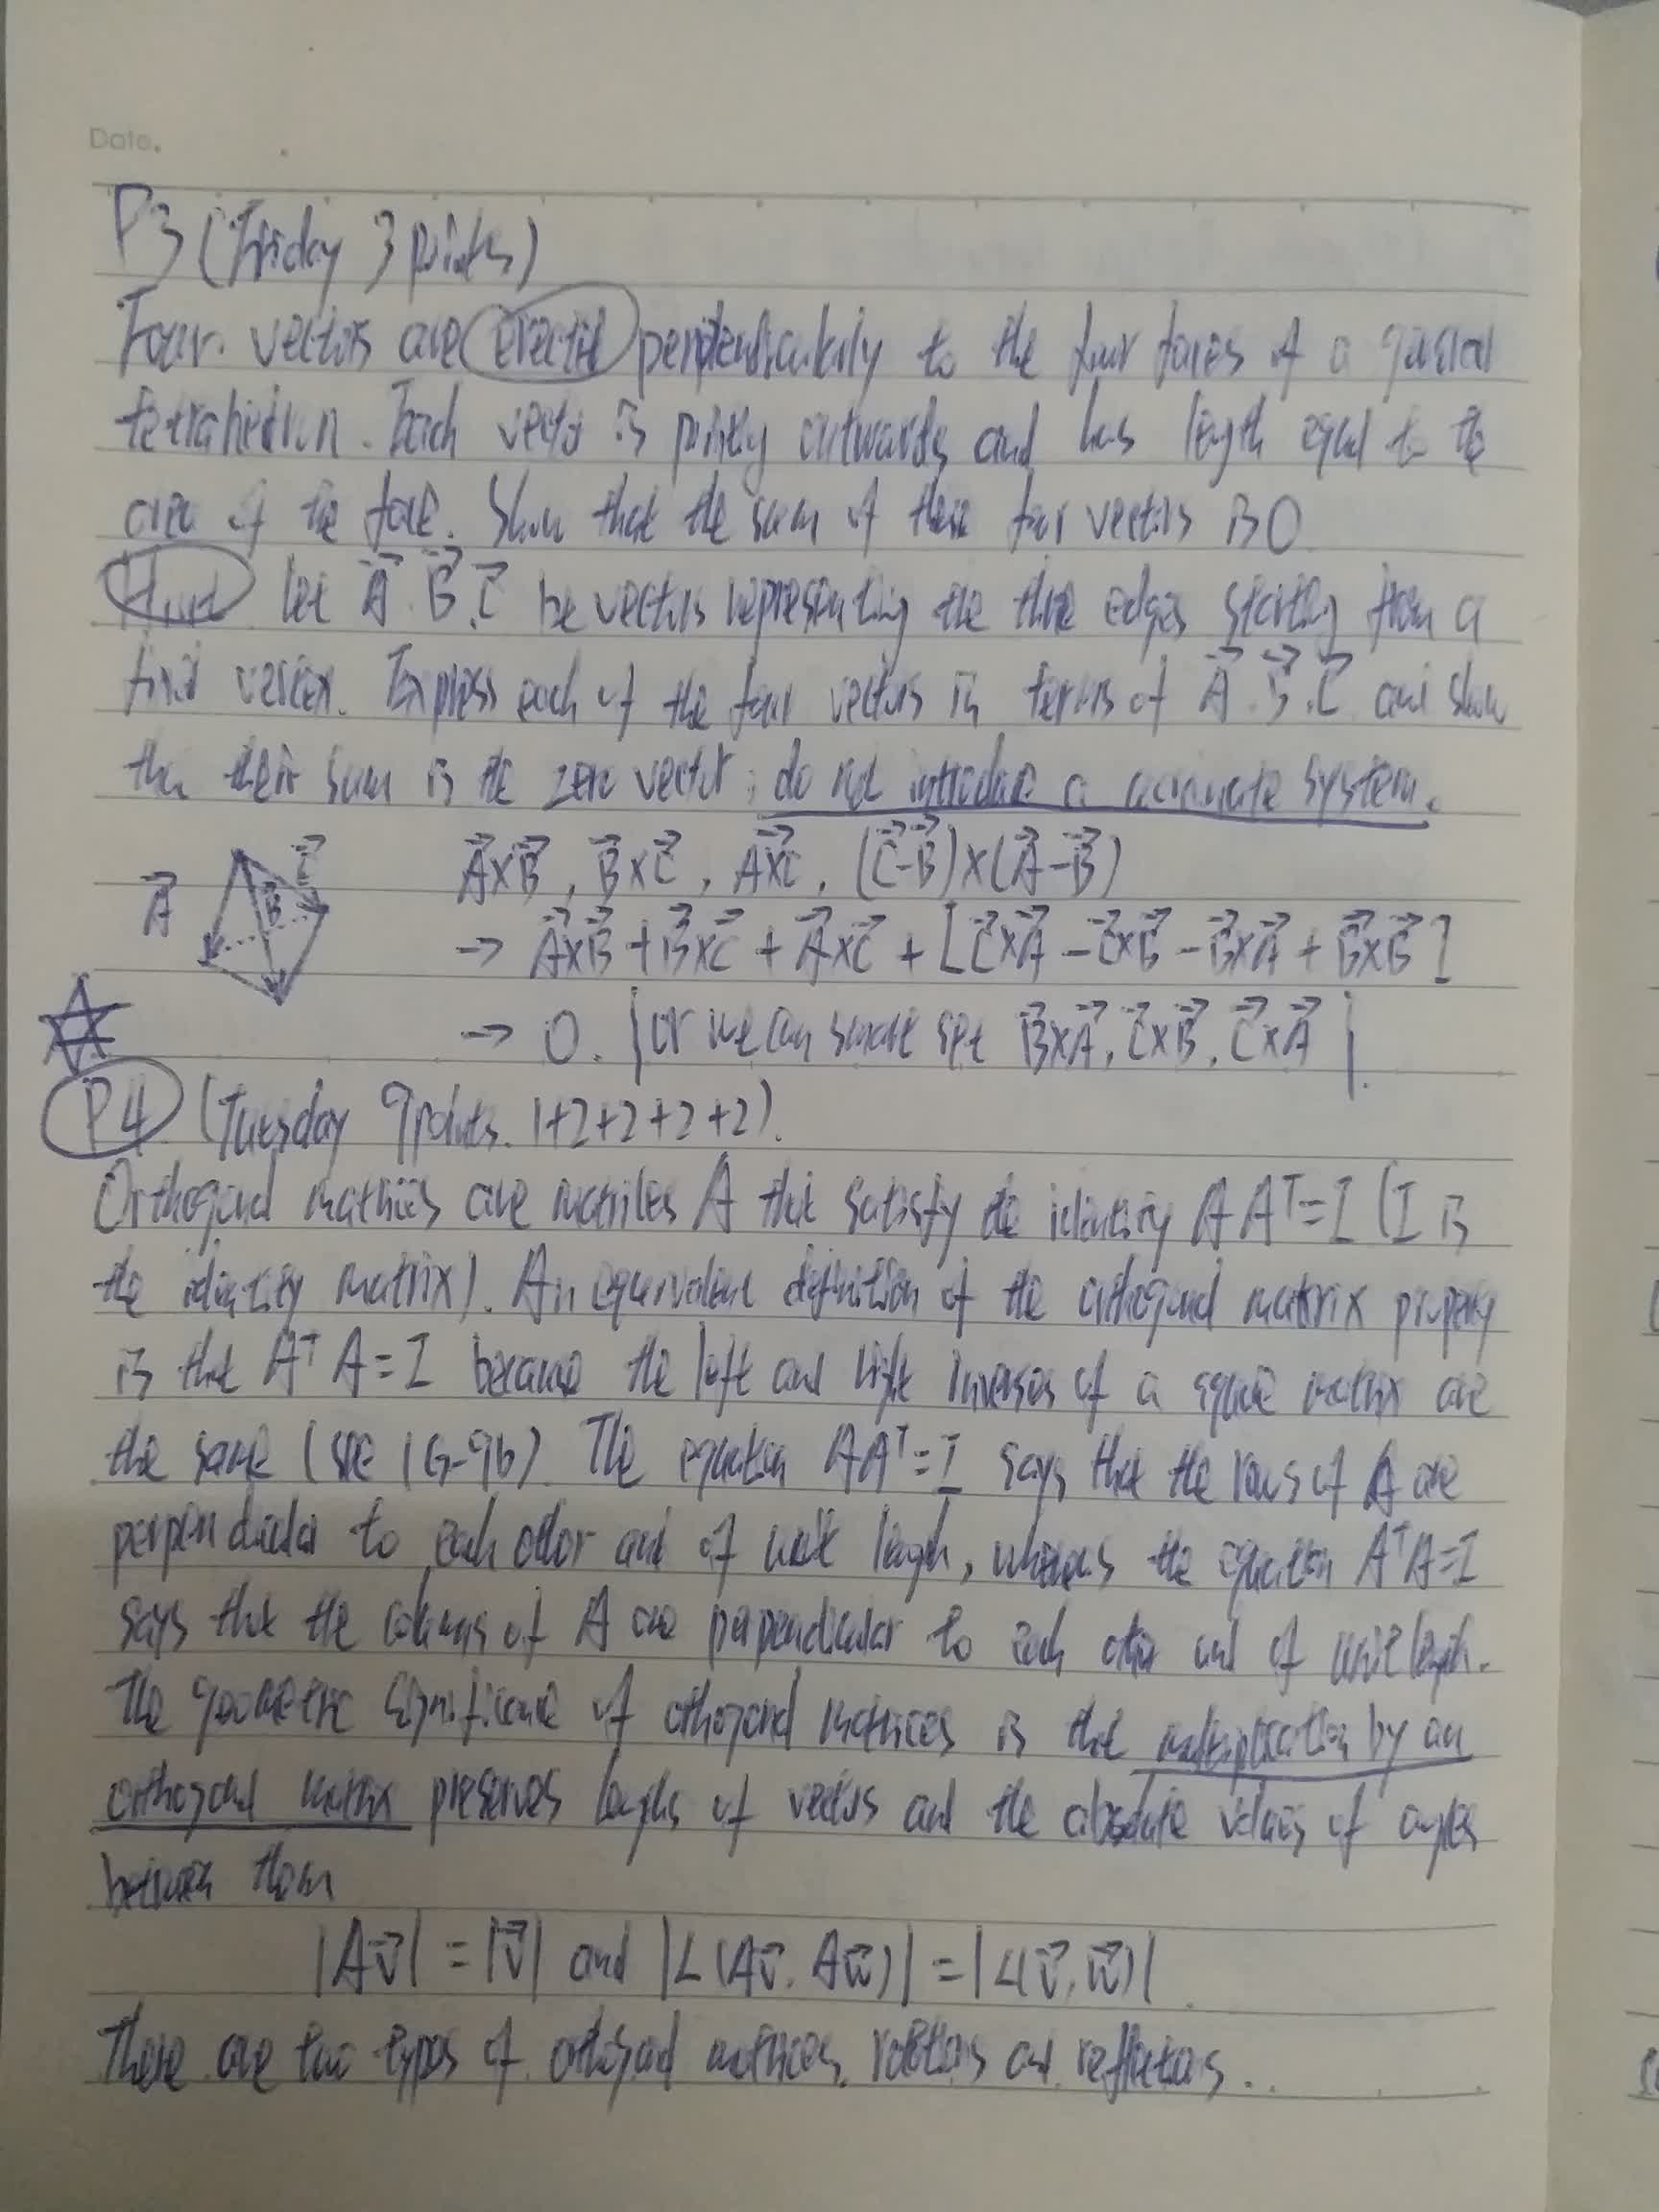 Date.
P3 (Friday 3 points)
Four vectors are erected perpendicularly to the four faces of a general
tetrahedron. Each vector is pointing outwards and has length equal to the
area of the face. Show that the sum of these four vectors is 0
Hint let A⃗. B⃗. C⃗ be vectors representing the three edges starting from a
fixed vertex. Express each of the four vectors in terms of A⃗. B⃗. C⃗ and show
the their sum is the zero vector; do not introduce a coordinate system.
A⃗ C⃗ B⃗ A⃗×B⃗, B⃗×C⃗, A⃗×C⃗, (C⃗-B⃗)×(A⃗-B⃗)
→ A⃗×B⃗ + B⃗×C⃗ + A⃗×C⃗ + [C⃗×A⃗ - C⃗×B⃗ - B⃗×A⃗ + B⃗×B⃗]
→ 0. (or we can get B⃗×A⃗, C⃗×B⃗, C⃗×A⃗).
P4 (Tuesday 9 points. 1+2+2+2+2).
Orthogonal matrices are matrices A that satisfy the identity AAᵀ=I (I is
the identity matrix). An equivalent definition of the orthogonal matrix property
is that Aᵀ A = I because the left and right inverses of a square matrix are
the same (see 1G-9b). The equation AAᵀ=I says that the rows of A are
perpendicular to each other and of unit length, whereas the equation AᵀA=I
says that the columns of A are perpendicular to each other and of unit length.
The geometric significance of orthogonal matrices is that multiplication by an
orthogonal matrix preserves lengths of vectors and the absolute values of angles
between them
|Av⃗| = |v⃗| and |∠(Av⃗. Aw⃗)| = |∠(v⃗, w⃗)|.
There are two types of orthogonal matrices, rotations and reflections..